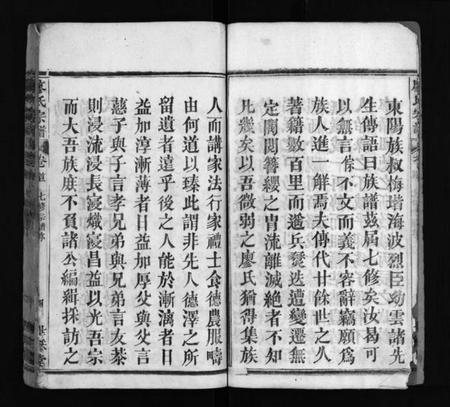 東陽族叔梅瑎海波烈臣幼雲諸先
生傳語曰族譜茲屆七修矣汝曷可
以無言儋不文而義不容辭竊願為
族人進一解焉夫傳代廿餘世之久
著籍數百里而遙兵燹迭遭變遷無
定閥閱簪纓之冑流離滅絕者不知
凡幾矣以吾微弱之廖氏猶得集族
人而講家法行家禮士食德農服疇
由何道以臻此謂非先人德澤之所
留遺者遠乎後之人能於漸漓者日
益加淳漸薄者日益加厚父與父言
慈子與子言孝兄弟與兄弟言友恭
則浸流浸長寖熾寖昌益以光吾宗
而大吾族庶不負諸公編緝採訪之
廖氏宗譜 卷首